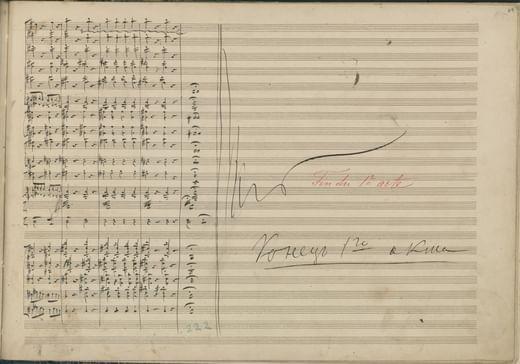 Fin du 1r acte
Конецъ 1го акта
222